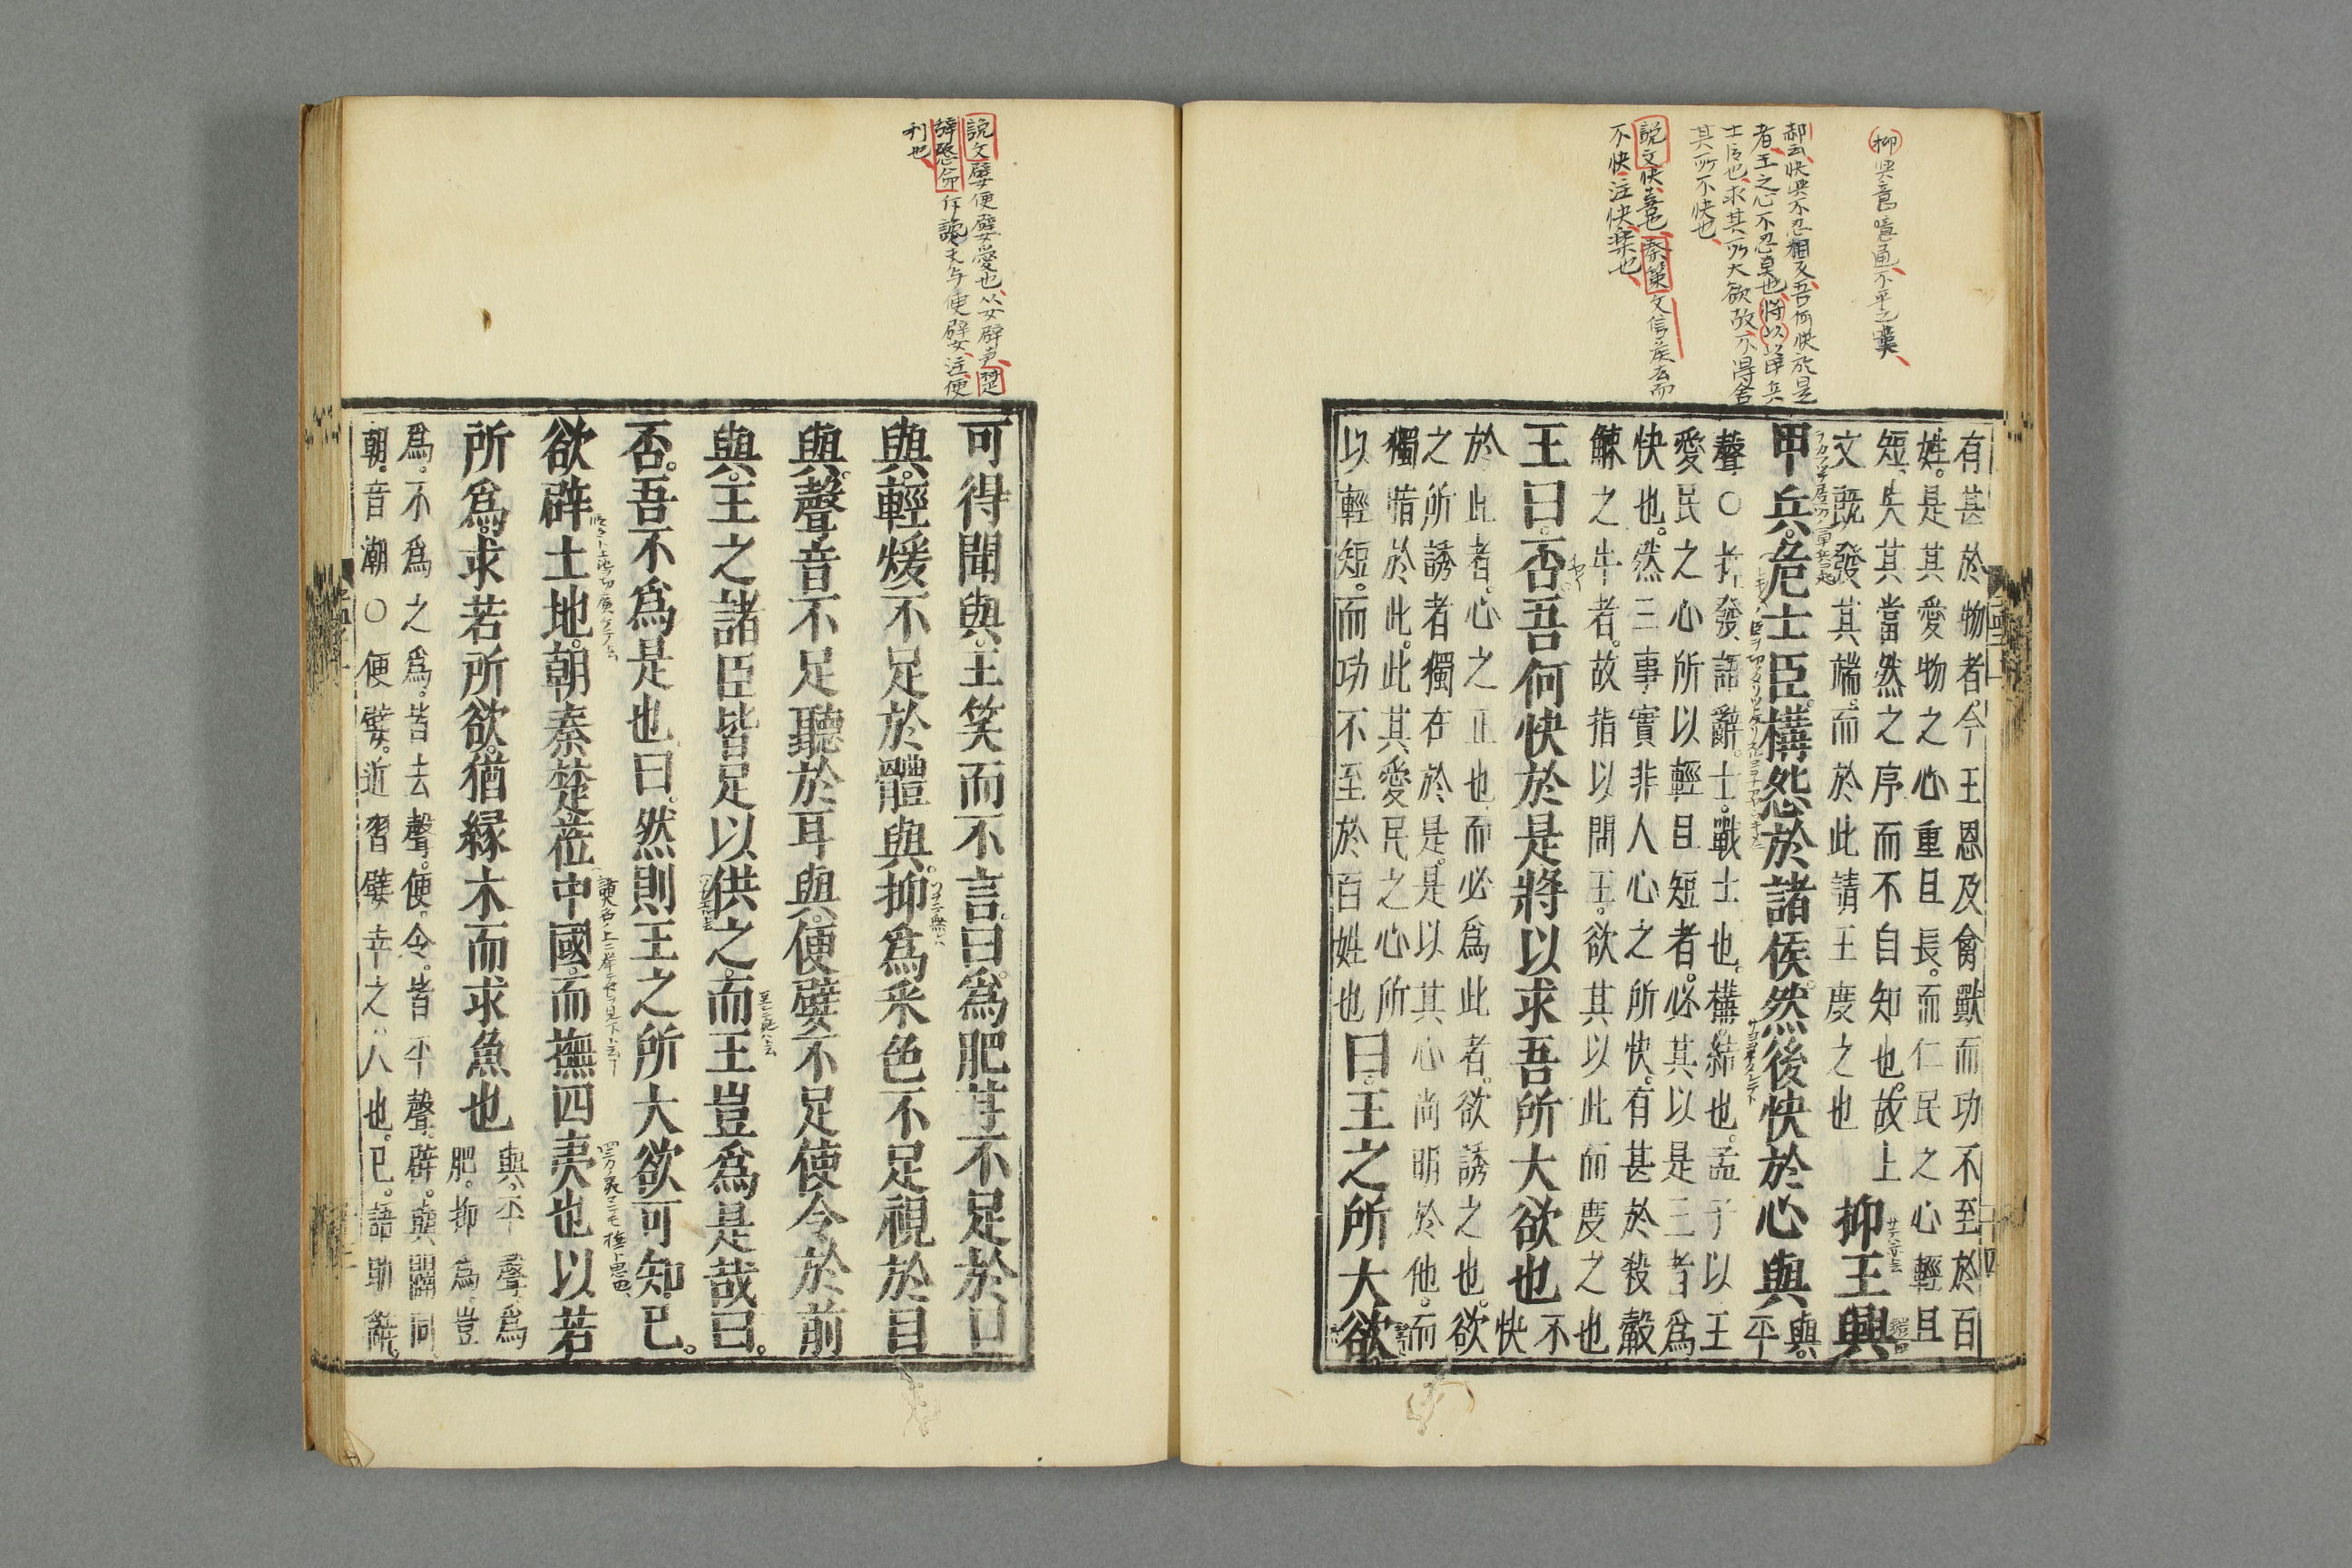 抑與意噫通不平之嘆
郝云快與不忍相反吾何快於是
者王之心不忍莫也將以
士臣也求其所大欲故不得舍
其所不快也
說文快喜也秦策文信矦去而
不快注快樂也
有甚於物者今王恩及禽獸而功不至於百
姓。是其愛物之心重且長。而仁民之心輕且
短、失其當然之序而不自知也。故上
文既發其端。而於此請王度之也
抑王興
甲兵。危士臣。構怨於諸侯。然後快於心與
與。平
聲。○抑發語辭。士。戰士也。構。結也。孟子以王
愛民之心所以輕且短者。必其以是三者爲
快也。然三事實非人心之所快。有甚於殺觳
觫之牛者。故指以問王。欲其以此而度之也
王曰。否吾何快於是將以求吾所大欲也
不
快
於此者。心之正也而必爲此者。欲誘之也。欲
之所誘者獨在於是。是以其心尚明於他。而
獨惛於此。此其愛民之心所
以輕短。而功不至於百姓也
曰。王之所大欲
說文嬖便嬖愛也从女辟声楚
利也
可得聞與。王笑而不言。曰。爲肥甘不足於口
與。輕煖不足於體與。抑爲采色不足視於目
與。聲音不足聽於耳與。便嬖不足使令於前
與。王之諸臣皆足以供之。而王豈爲是哉曰。
否。吾不爲是也曰。然則王之所大欲可知。已。
欲辟土地。朝秦楚莅中國。而撫四夷也以若
所爲。求若所欲。猶緣木而求魚也
與。平聲。爲
肥。抑爲、豈
爲。不爲之爲。皆去聲。便。令。皆平聲。辟。與闢同
朝。音潮○便嬖。近習嬖幸之人也。已。語助辭。